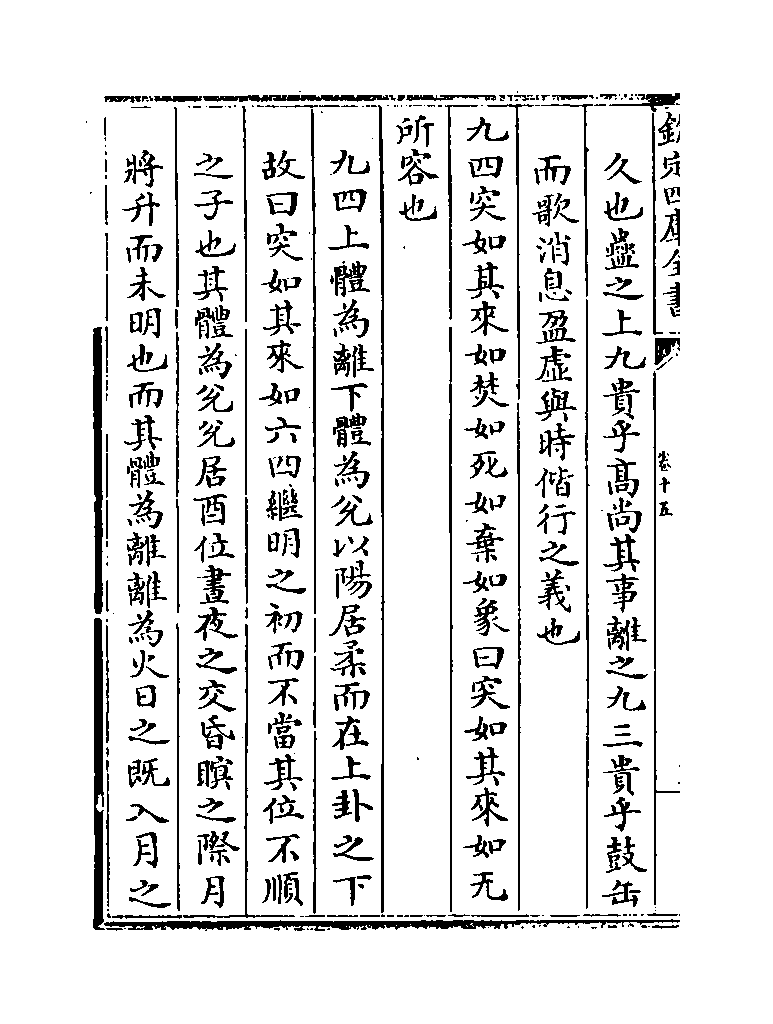 欽定四庫全書
卷十五
久也蠱之上九貴乎髙尚其事離之九三貴乎鼓缶
而歌消息盈虛與時偕行之義也
九四突如其來如焚如死如棄如象曰突如其來如无
所容也
九四上體為離下體為兊以陽居柔而在上卦之下
故曰突如其來如六四繼明之初而不當其位不順
之子也其體為兊兊居酉位晝夜之交昏暝之際月
將升而未明也而其體為離離為火日之既入月之